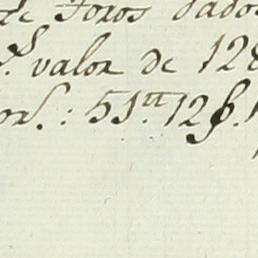 de Foros dados
p.r valor de 128
or.s : 51.tt 12 ꝭ.